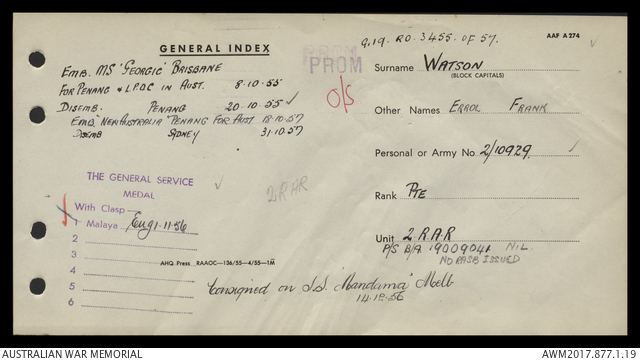 G.19. R.O. 3455. OF 57.
AAF A 274
GENERAL INDEX
PROM
EMB. MS 'GEORGIC' BRISBANE
FOR PENANG & L.P.O.C IN AUST. 8·10·55
DISEMB. PENANG 20·10·55
EMB. "NEW AUSTRALIA" PENANG FOR AUST 18·10·57
DISEMB SYDNEY 31·10·57
O/S
Surname WATSON
(BLOCK CAPITALS)
Other Names ERROL FRANK
Personal or Army No. 2/10929
Rank PTE
Unit 2 R.A.R
P/S B/A 19009041 NIL
NO PASB ISSUED
THE GENERAL SERVICE
MEDAL
With Clasp
1 Malaya 1·11·56
2
3
4
5
6
2 RAR
AHQ Press. RAAOC—136/55—4/55—1M
Consigned on S.S. "Mandama" Melb
AUSTRALIAN WAR MEMORIAL
AWM2017.877.1.19